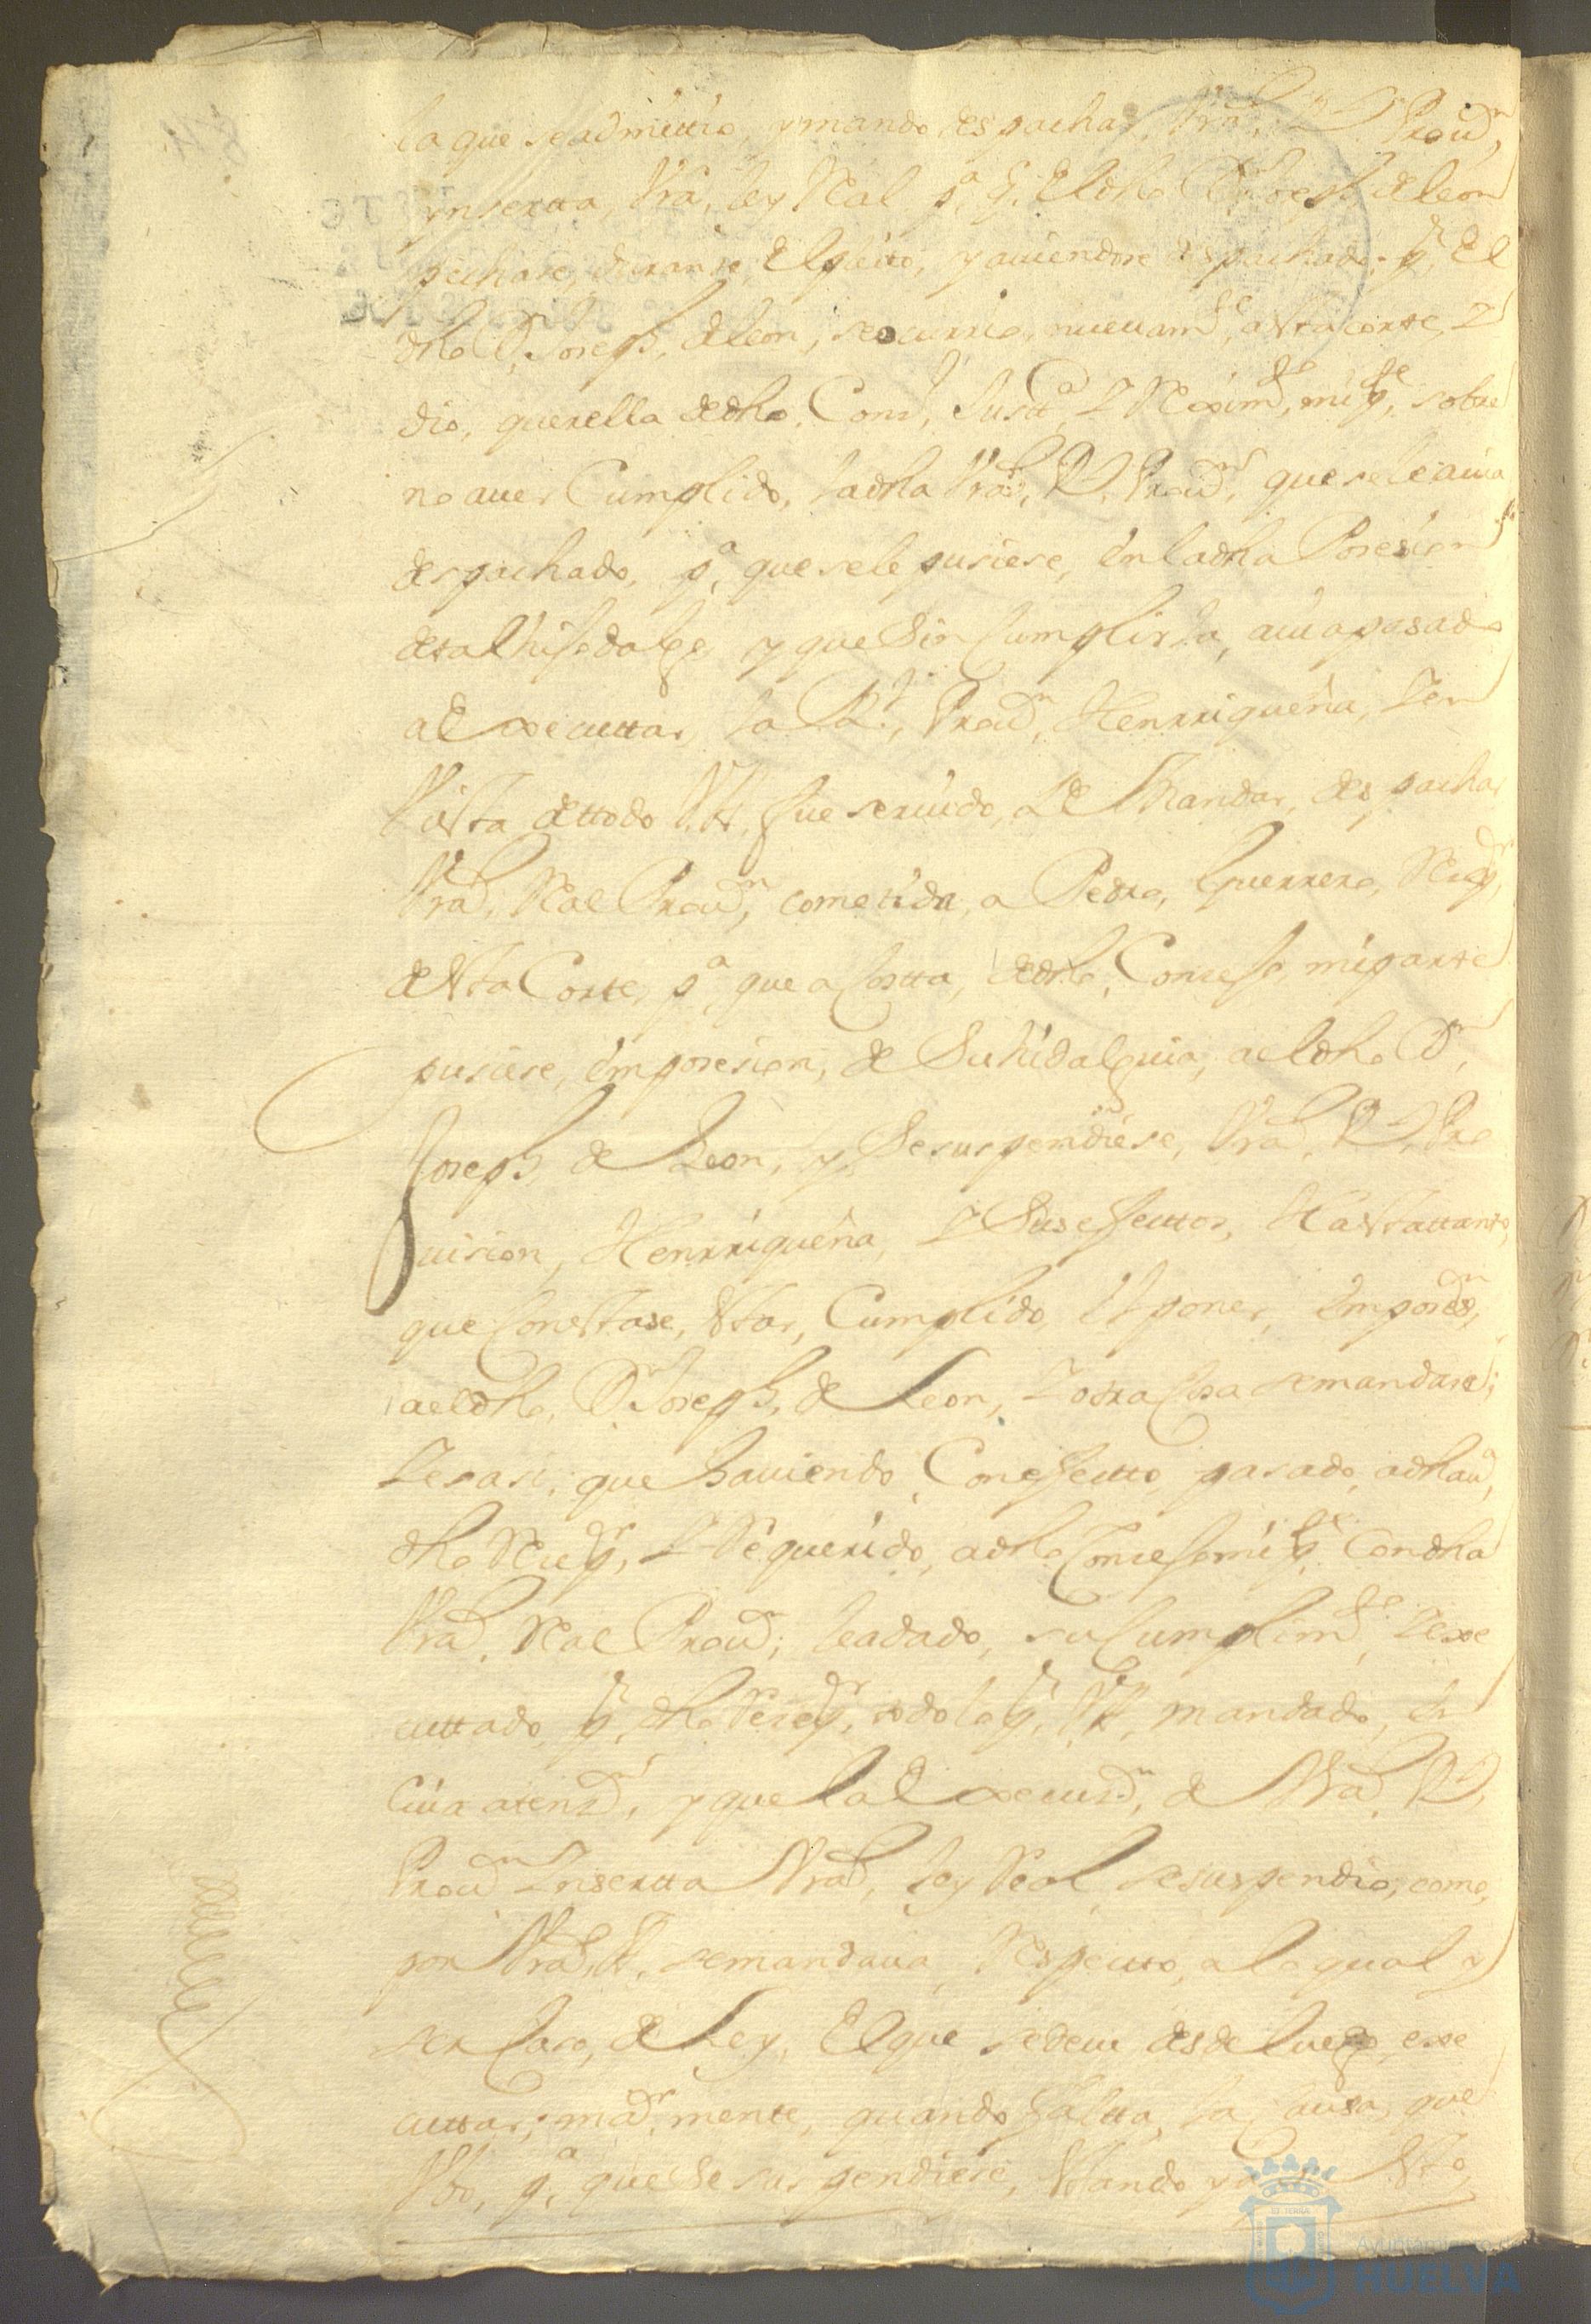 la que se admittio, y mando despachar, Vrã, Rˡ Prouⁿ,
ynsertta, Vrã, ley Real pᵃ q̃, El dho Dⁿ Joseph de leon
pechase, durante, El pleito, y auiendose despachado; pʳ, El
dho Dⁿ Joseph, de leon, se ocurrio, nueuamᵗᵉ, a Vtra corte, Y
dio, querella de dho, Conᵒ, Justᵃ, Y Reximᵗᵒ, mi pᵗᵉ, sobre
no auer Cumplido, la dha Vrã, Rˡ, Prouⁿ, que se le auia
despachado, pᵃ, que se le pusiese, en la dha Posesion
de tal hijodalgo, y que Sin Cumplirla, auia pasado
a Executtar, la Rˡ, Prouⁿ, Henrriqueña, Y en
Vista de ttodo V.A, fue seruido, de Mandar, despachar
Vrã, Real Prouⁿ, cometida, a Pedro, Guerrero, Rezʳ,
de Vtra Corte, pᵃ, que a Costta, de dho, Consejo, mi parte
pusiese, en posesion, de Su hidalguia, a el dho Dⁿ,
Joseph, de Leon, y, Se suspendiese, Vrã, Rˡ, Pro
uision, Henrriqueña, Y Sus efecttos, Hasta ttanto,
que Constase, estar, Cumplido, el poner, en posesⁿ,
a el dho, Dⁿ Joseph, de Leon, Y otra Cosa se mandase;
Y es asi, que hauiendo, Con efectto, pasado, a dha uᵃ,
dho Rezʳ, Y Requerido, a dho Consejo mi pᵗᵉ, Con dha
Vrã, Real Prouⁿ; lea dado, su Cumplimᵗᵒ, Y exe
cuttado, pʳ, dho Rezʳ, todo lo pʳ, V.A, mandado, en
Cuia atenzⁿ, y que la Execuzⁿ, de Vrã, Rˡ,
Prouⁿ Ynsertta Vrã, ley Real, se suspendio, como,
por Vrã, A, se mandaua, Respecto, a lo qual y
ser Caso, de Ley, El que se deue desde luego, exe
cuttar; maʳmente, quando faltta, la, causa, que
Vbo, pᵃ, que Se suspendiese, estando ya
Ayuntamiento de
HUELVA